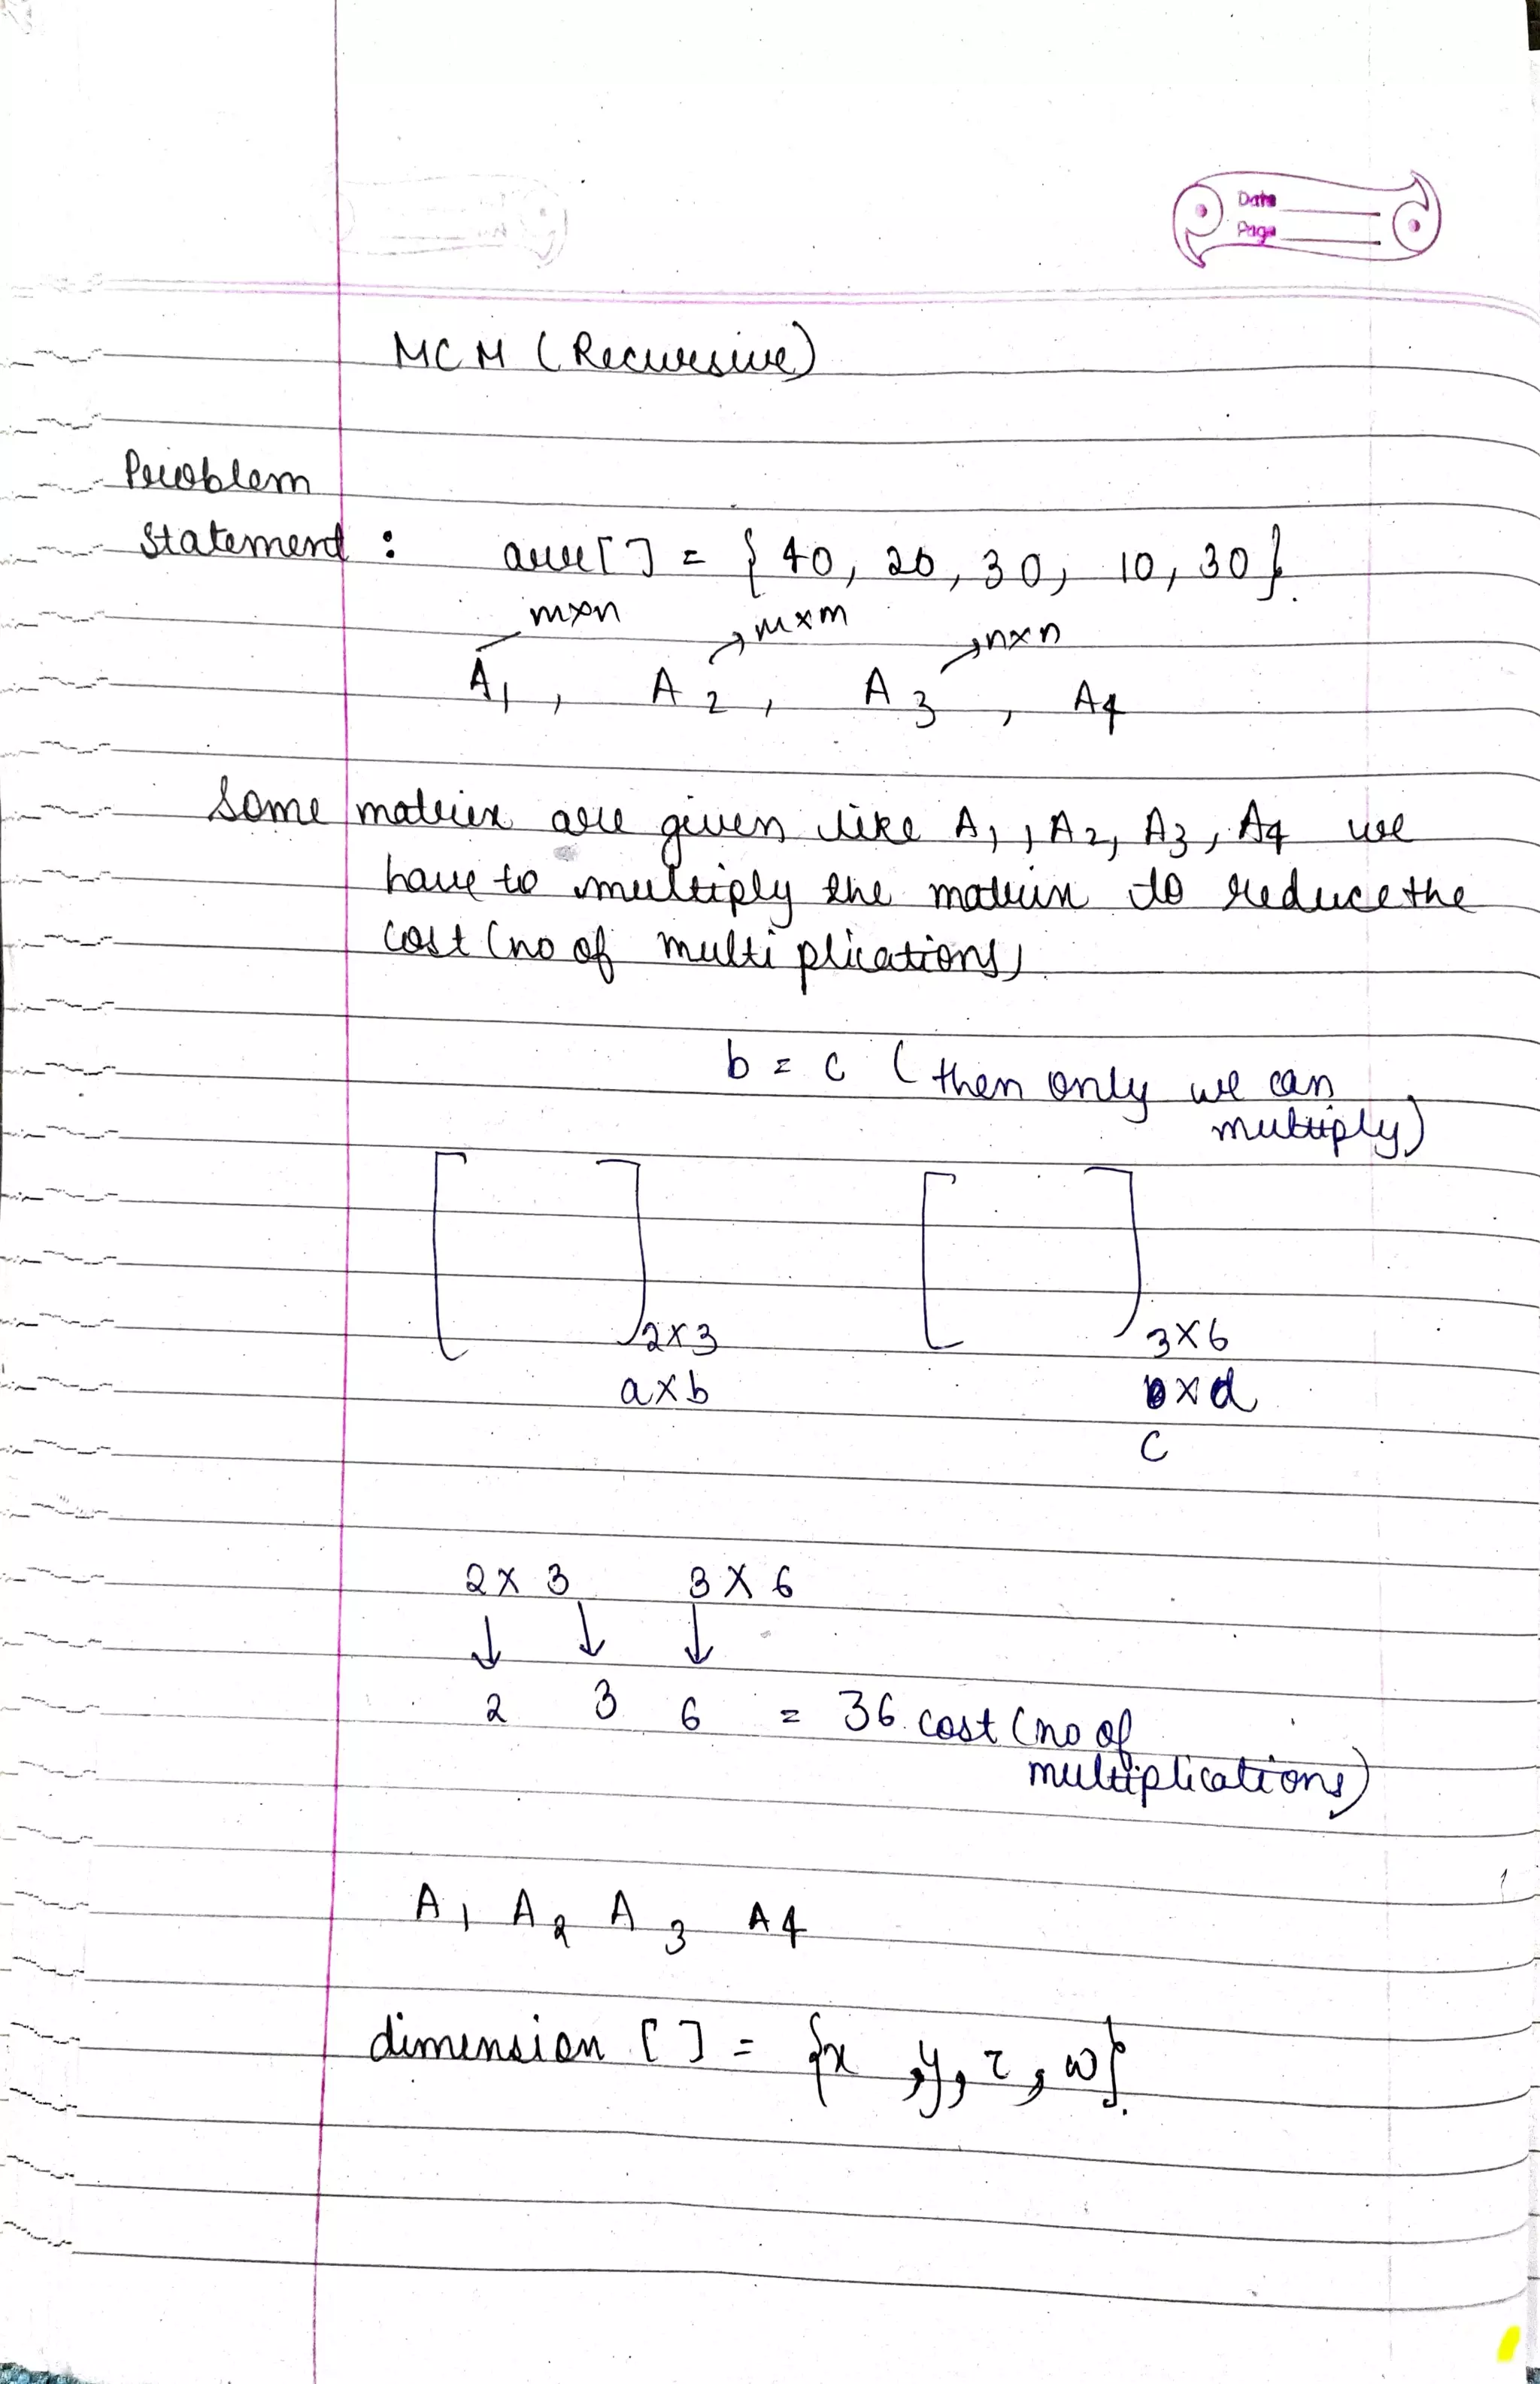 Date
Page
MCM (Recursive)
Problem
Statement : arr[] = { 40, 20, 30, 10, 30}.
m×n m×m n×n
A1 , A2 , A3 , A4
Some matrix are given like A1, A2, A3, A4 we
have to multiply the matrix to reduce the
cost (no of multiplications)
b = c (then only we can
multiply)
2×3 3×6
a×b b×d
c
2 × 3 3 × 6
↓ ↓ ↓
2 3 6 = 36 cost (no of
multiplications)
A1 A2 A3 A4
dimension [] = {x ,y, z, w}.